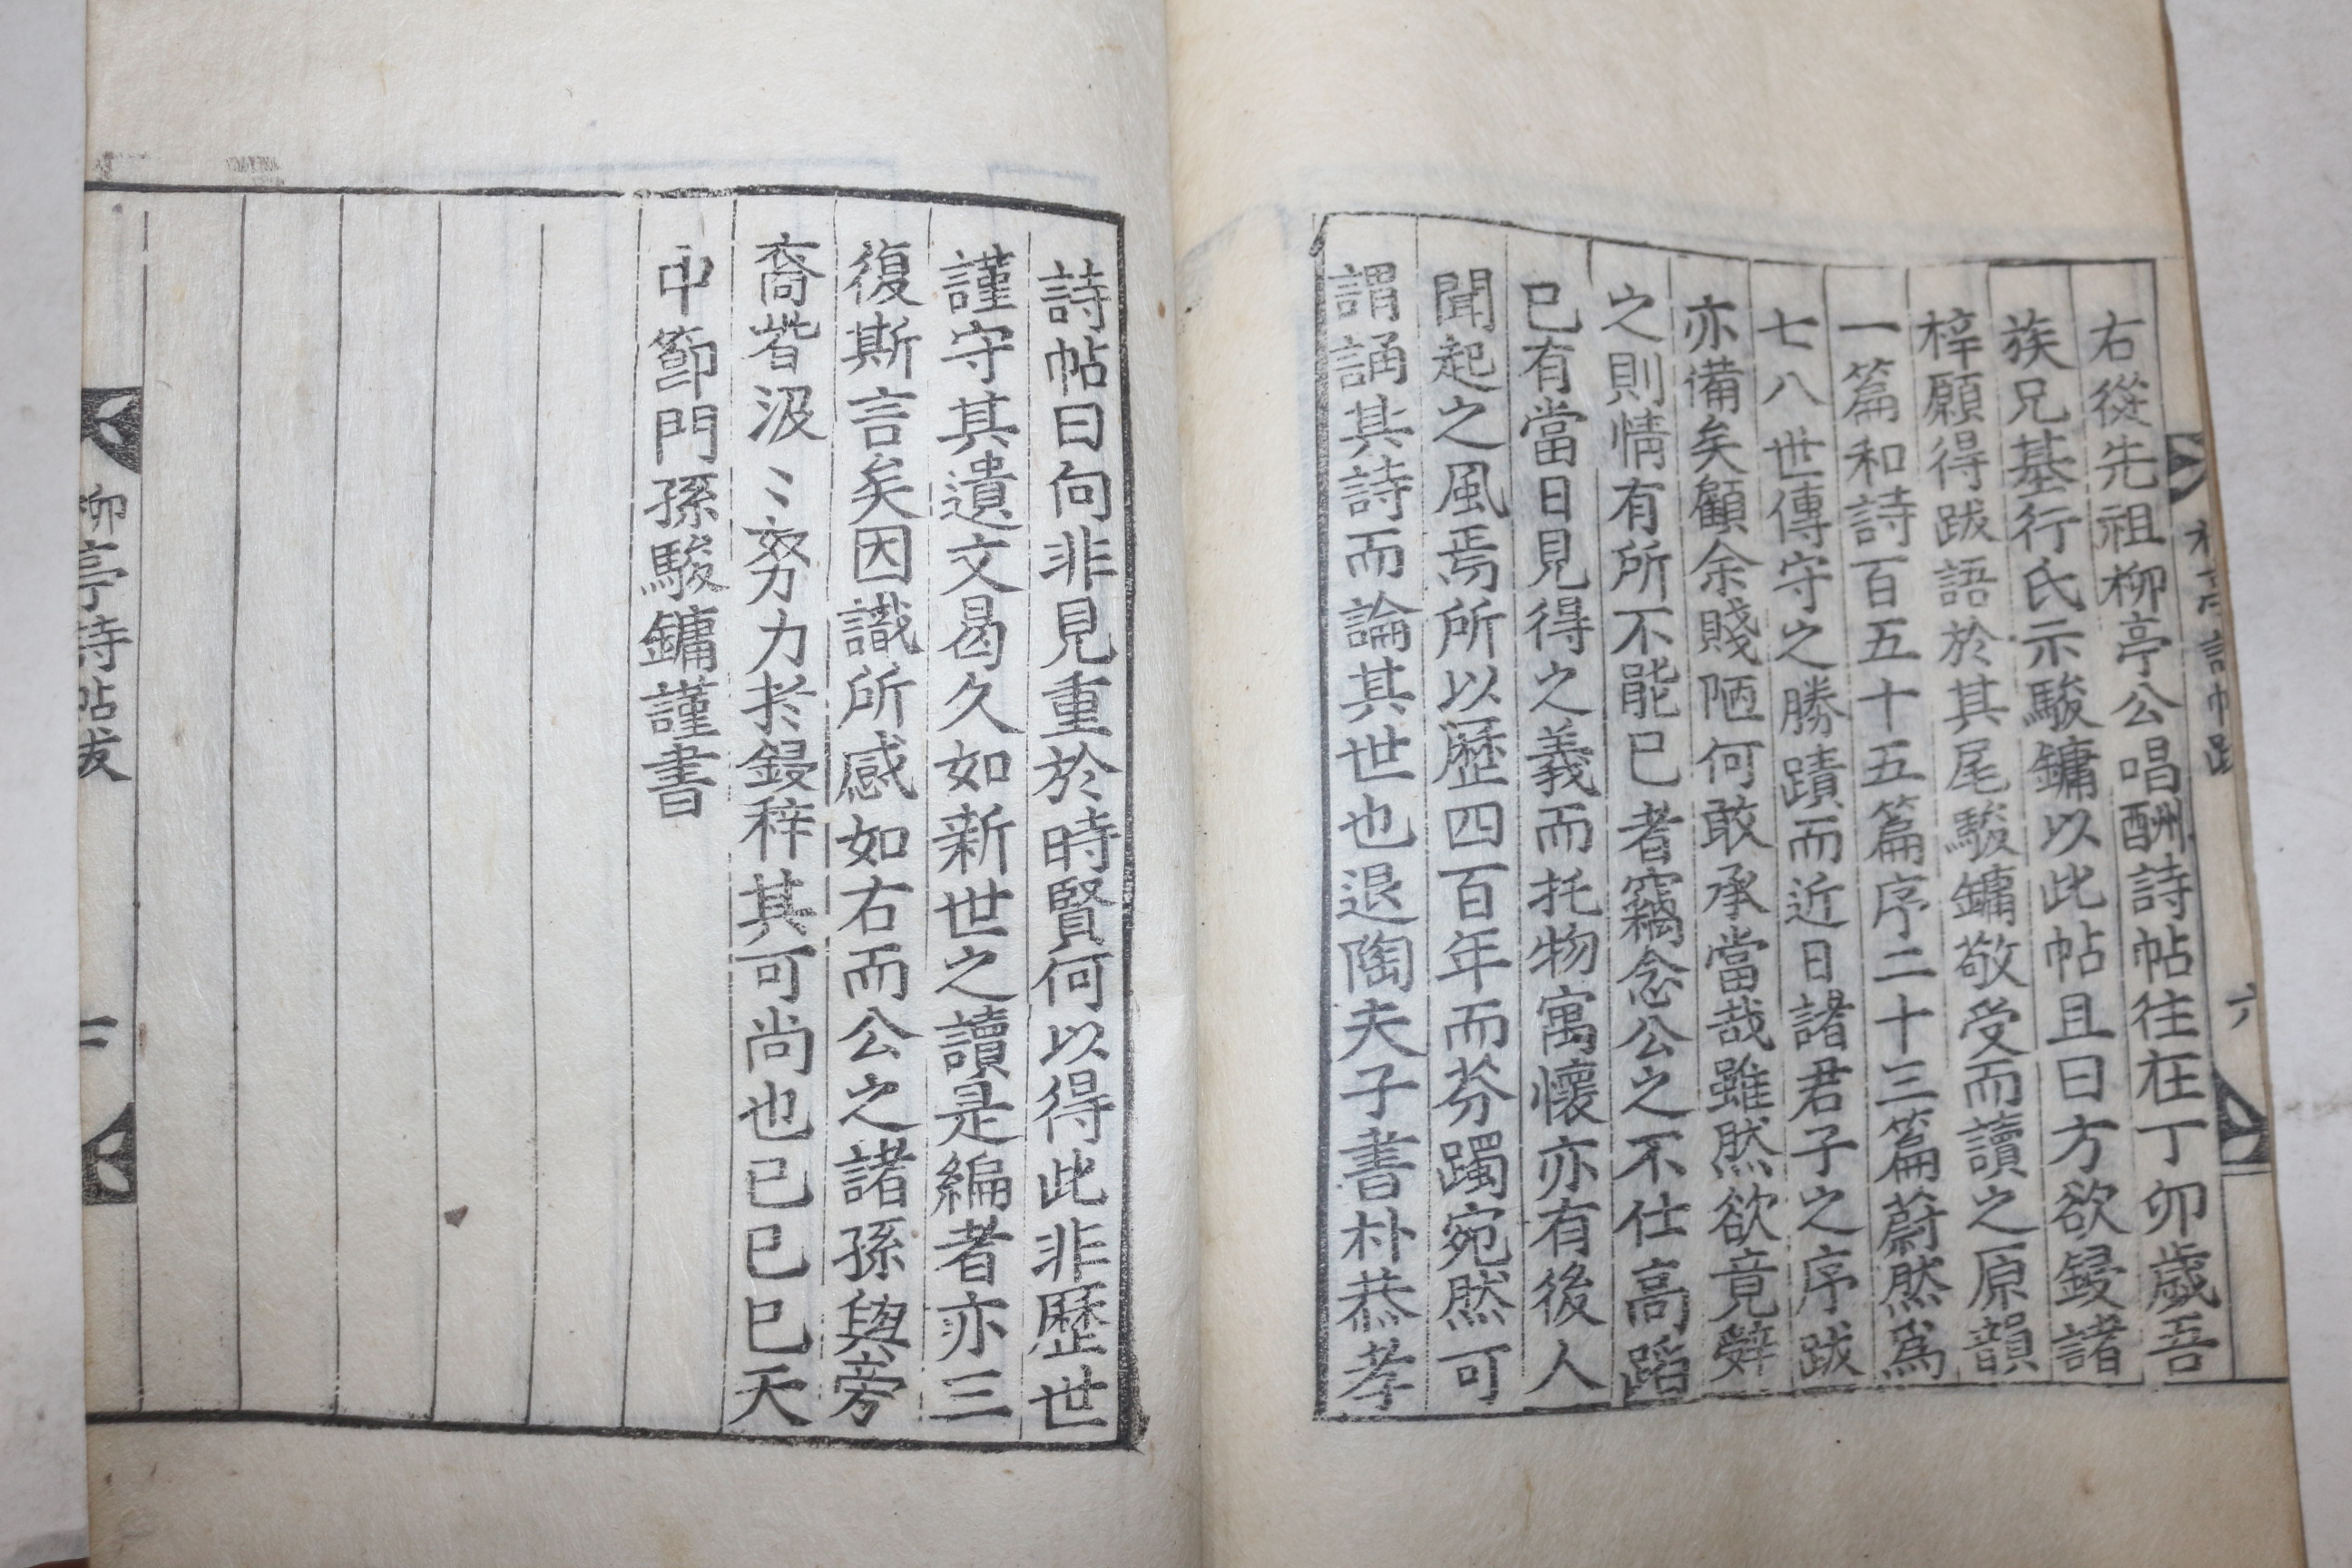 右從先祖柳亭公唱酬詩帖往在丁卯歲吾
族兄基行氏示駿鏞以此帖且曰方欲鋟諸
梓願得跋語於其尾駿鏞敬受而讀之原韻
一篇和詩百五十五篇序二十三篇蔚然爲
七八世傳守之勝蹟而近日諸君子之序跋
亦備矣顧余賤陋何敢承當哉雖然欲竟辤
之則情有所不能已者竊念公之不仕高蹈
已有當日見得之義而托物寓懷亦有後人
聞起之風焉所以歷四百年而芬躅宛然可
謂誦其詩而論其世也退陶夫子書朴恭孝
詩帖曰向非見重於時賢何以得此非歷世
謹守其遺文曷久如新世之讀是編者亦三
復斯言矣因識所感如右而公之諸孫與旁
裔皆汲〻努力扵鋟梓其可尚也已巳巳天
中節門孫駿鏞謹書
柳亭詩帖跋